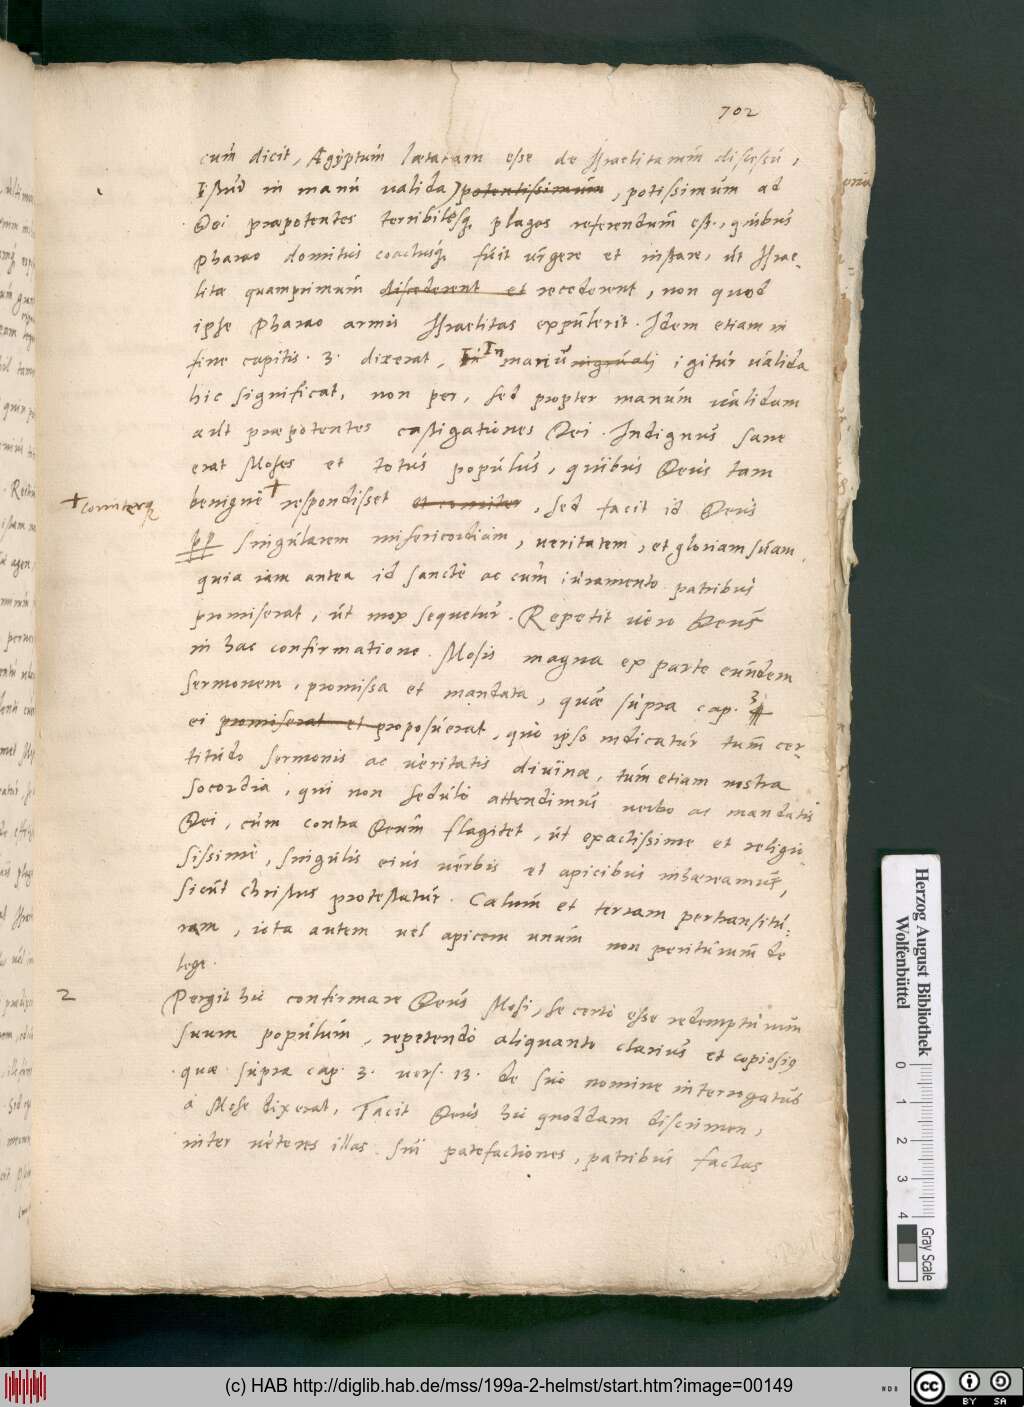 702
cum dicit, Ægyptum lætaram esse de Israelitarum discessu,
Istud in manu valida, potentissimum, potissimum ad
Dei præpotentes terribilesq, plagas referendum est, quibus
Pharao domitus coactusq, fuit urgere et instare, ut Israe-
litæ quamprimum discederent et recederent, non quod
ipse Pharao armis Israelitas expulerit. Idem etiam in
fine capitis. 3. dixerat, In manu igitur valida
hic significat, non per, sed propter manum validam
aut præpotentes castigationes Dei. Indignus sane
erat Moses et totus populus, quibus Deus tam
benigne + respondisset et comiter, sed facit id Deus
+ comiterq
pp singularem misericordiam, veritatem, et gloriam suam
quia iam antea id sancte ac cum iuramento patribus
promiserat, ut mox sequetur. Repetit vero Deus
in hac confirmatione Mosis magna ex parte eundem
sermonem, promissa et mandata, quæ supra cap. 3
ei promiserat et proposuerat, quo ipso indicatur tum cer-
titudo sermonis ac veritatis divinæ, tum etiam nostra
socordia, qui non sedulo attendimus verbo ac mandatis
Dei, cum contra Deum flagitet, ut exactissime et religio-
sissime, singulis eius verbis et apicibus inhæreamus,
sicut Christus protestatur. Cælum et terram pertransitu-
ram, iota autem vel apicem unum non periturum de
lege.
2
Pergit hic confirmare Deus Mosi, se certo esse redempturum
suum populum, repetendo aliquanto clarius et copiosig
quæ supra cap. 3. vers. 13. de suo nomine interrogatus
a Mose dixerat, Facit Deus hic quoddam discrimen,
inter veteres illas sui patefactiones, patribus factas
Herzog August Bibliothek
Wolfenbüttel
0 1 2 3 4
Gray Scale
(c) HAB http://diglib.hab.de/mss/199a-2-helmst/start.htm?image=00149
cc BY SA